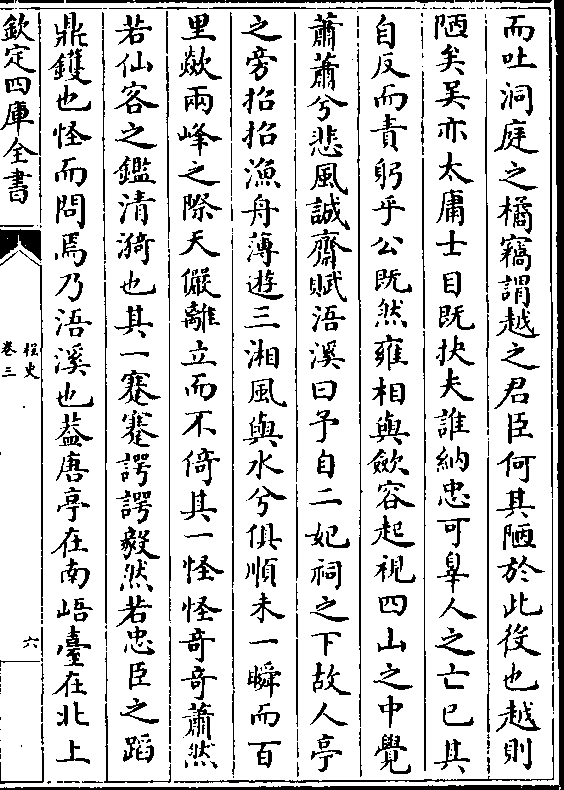 而吐洞庭之橘竊謂越之君臣何其陋於此役也越則
陋矣吴亦太庸士目既抉夫誰納忠可辠人之亡已其
自反而責躬乎公既然雍相與歛容起視四山之中覺
蕭蕭兮悲風誠齋賦浯溪曰予自二妃祠之下故人亭
之旁招招漁舟薄遊三湘風與水兮俱順未一瞬而百
里歘兩峰之際天儼離立而不倚其一怪怪奇奇蕭然
若仙客之鑑清漪也其一蹇蹇諤諤毅然若忠臣之蹈
鼎鑊也怪而問焉乃浯溪也葢唐亭在南峿臺在北上
欽定四庫全書
桯史
卷三
六